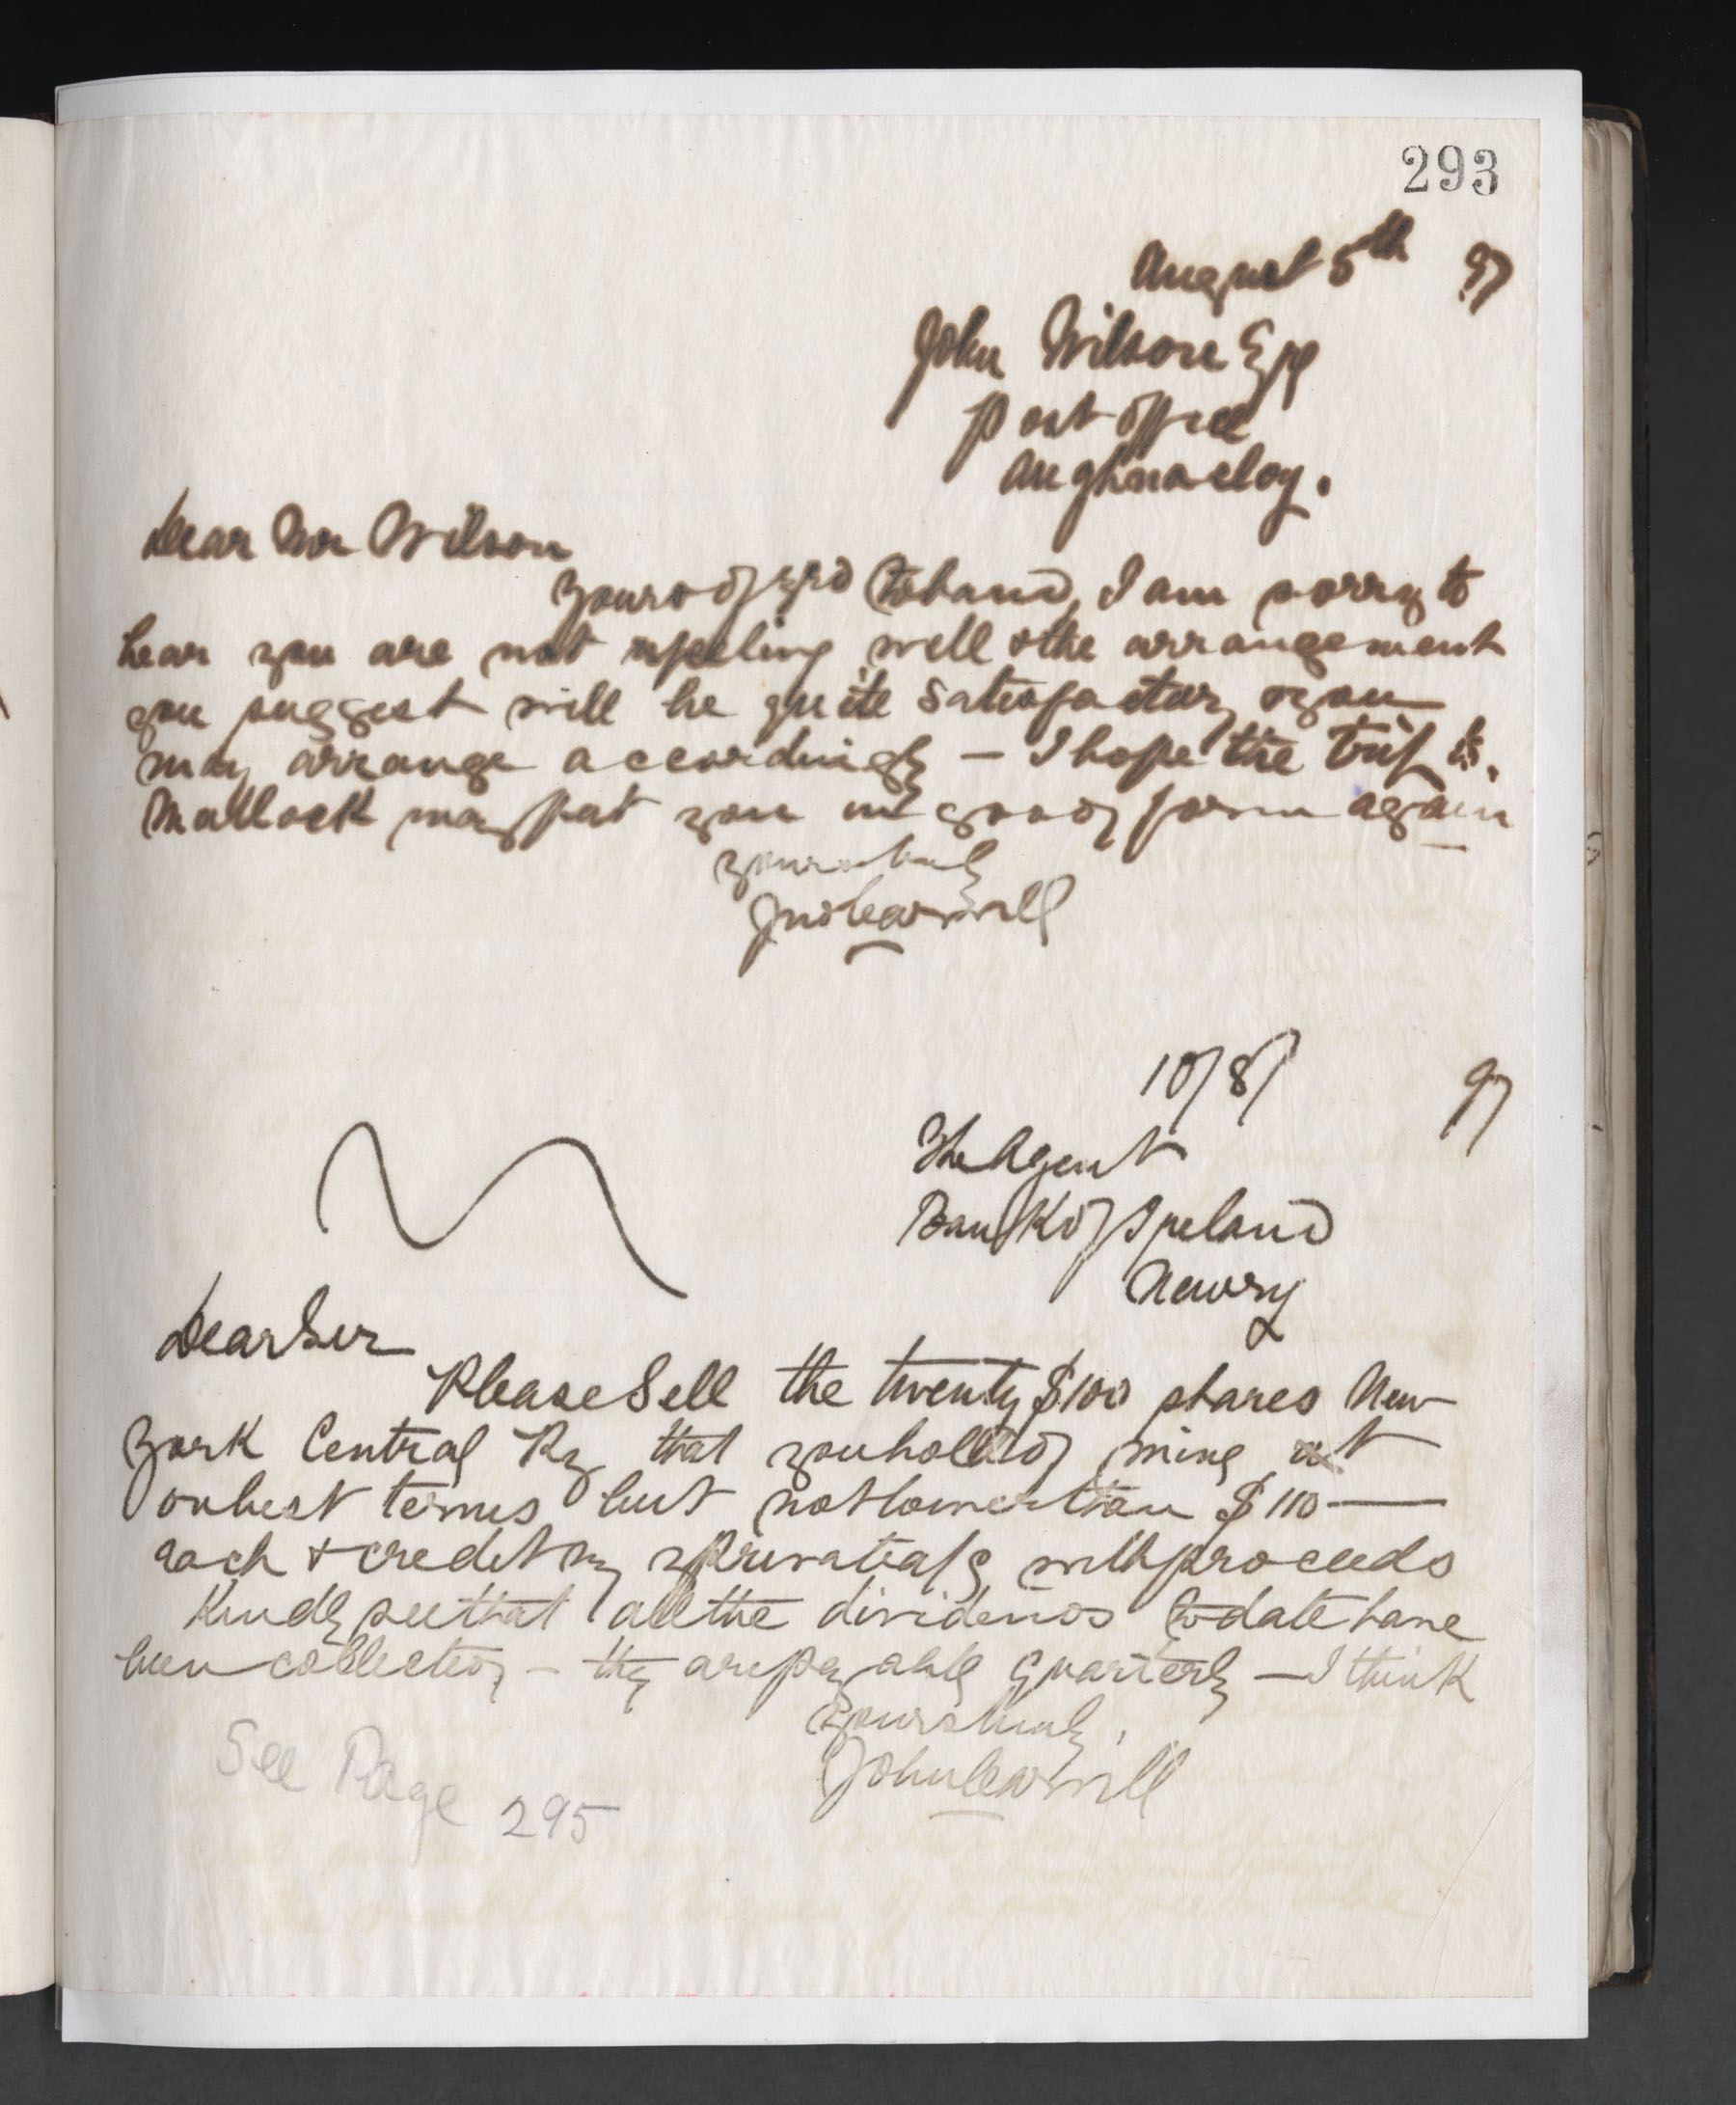 293
August 5th 97
John Wilson Esq
Post Office
Aughnacloy.
Dear Mr Wilson
Yours of 3rd to hand, I am sorry to
hear you are not feeling well & the arrangement
you suggest will be quite satisfactory & you
may arrange accordingly – I hope the trip to
Matlock may put you in good form again
Yours truly
Jno Carvill
10/8/ 97
The Agent
Bank of Ireland
Newry
Dear Sir
Please Sell the twenty $100 shares New
York Central Ry that you hold of mine at
on best terms but not lower than $110 —
each & credit my private a/c with proceeds
Kindly see that all the dividends to date have
been collected, – they are payable quarterly – I think
Yours truly,
John Carvill
See Page 295